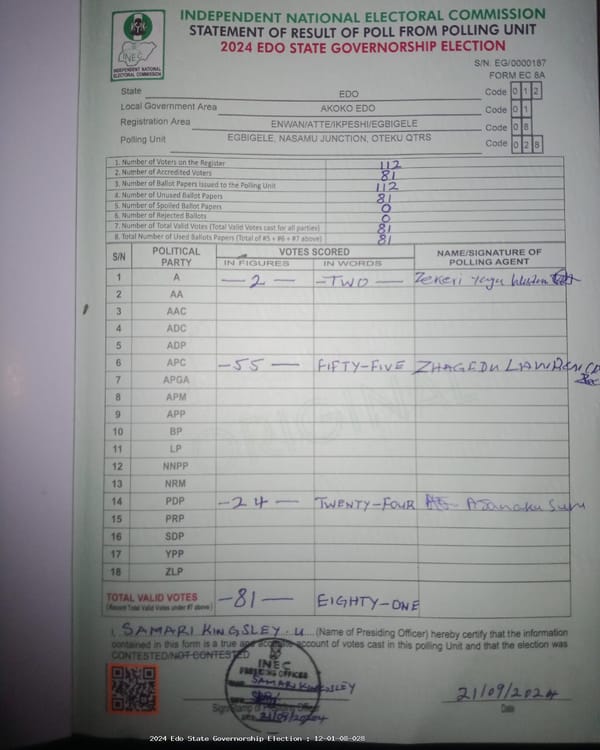 INDEPENDENT NATIONAL ELECTORAL COMMISSION
STATEMENT OF RESULT OF POLL FROM POLLING UNIT
2024 EDO STATE GOVERNORSHIP ELECTION
INEC
INDEPENDENT NATIONAL ELECTORAL COMMISSION
S/N: EG/0000187
FORM EC 8A
State EDO Code 0 1 2
Local Government Area AKOKO EDO Code 0 1
Registration Area ENWAN/ATTE/IKPESHI/EGBIGELE Code 0 8
Polling Unit EGBIGELE, NASAMU JUNCTION, OTEKU QTRS Code 0 2 8
1. Number of Voters on the Register 112
2. Number of Accredited Voters 81
3. Number of Ballot Papers issued to the Polling Unit 112
4. Number of Unused Ballot Papers 81
5. Number of Spoiled Ballot Papers 0
6. Number of Rejected Ballots 0
7. Number of Total Valid Votes (Total Valid Votes cast for all parties) 81
8. Total Number of Used Ballots Papers (Total of #5 + #6 + #7 above) 81
S/N POLITICAL PARTY VOTES SCORED NAME/SIGNATURE OF POLLING AGENT
IN FIGURES IN WORDS
1 A -2- -TWO- Zekeri
2 AA
3 AAC
4 ADC
5 ADP
6 APC -55- FIFTY-FIVE ZHAGEDU
7 APGA
8 APM
9 APP
10 BP
11 LP
12 NNPP
13 NRM
14 PDP -24- TWENTY-FOUR
15 PRP
16 SDP
17 YPP
18 ZLP
ORIGINAL
TOTAL VALID VOTES -81- EIGHTY-ONE
(Record Total Valid Votes under #7 above)
I, SAMARI KINGSLEY. U (Name of Presiding Officer) hereby certify that the information
contained in this form is a true and accurate account of votes cast in this polling Unit and that the election was
CONTESTED/NOT CONTESTED
INEC
PRESIDING OFFICER
SAMARI KINGSLEY
21/09/2024
Sign/Stamp of Presiding Officer
21/09/2024
Date
2024 Edo State Governorship Election : 12-01-08-028